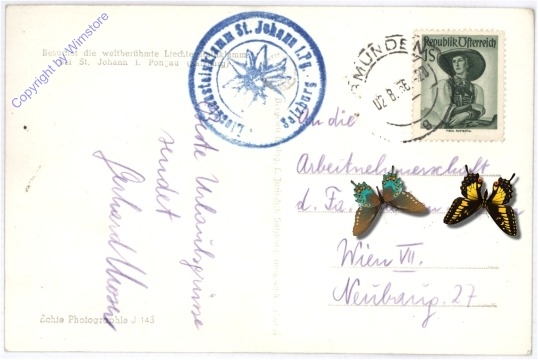 Copyright by Wimstore
Besuchet die weltberühmte Liechtensteinklamm
bei St. Johann i. Pongau
Liechtensteinklamm St. Johann i. Pg. Salzburg
GMUNDEN
Republik Österreich
1S
An die
Arbeitnehmerschaft
d. Fa.
Wien VII.
Neubaug. 27
Beste Urlaubsgrüsse
sendet
Gerhard Moser
Echte Photographie J 143